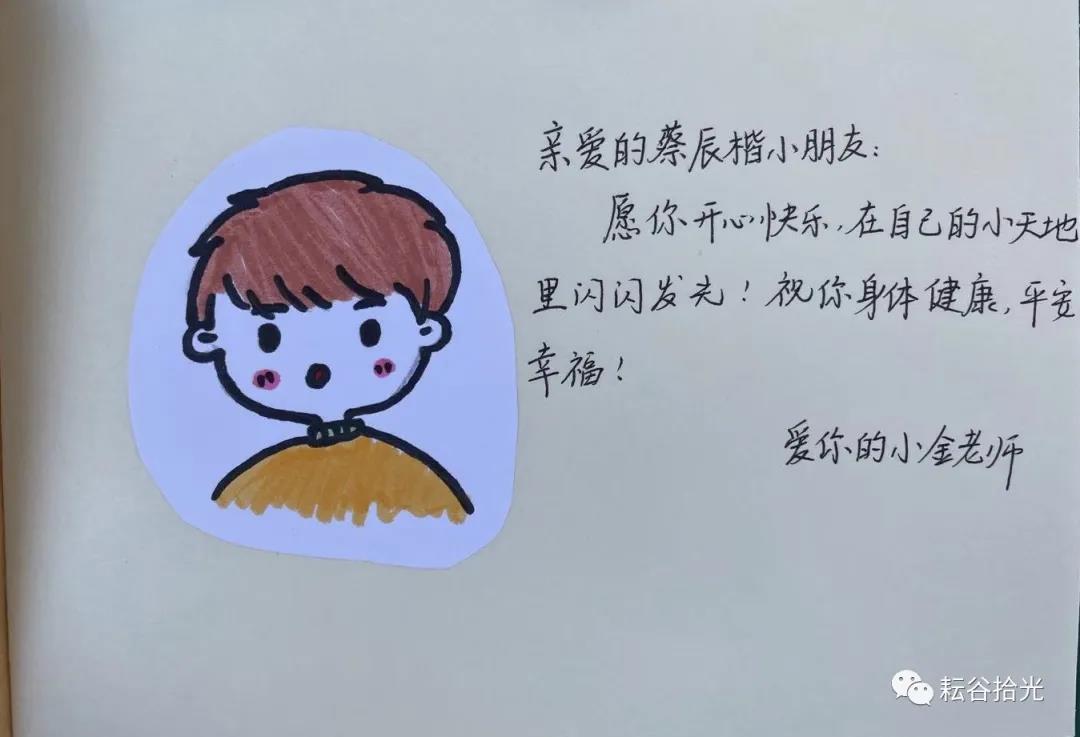 亲爱的蔡辰楷小朋友：
愿你开心快乐，在自己的小天地
里闪闪发光！祝你身体健康，平安
幸福！
爱你的小金老师
耘谷拾光